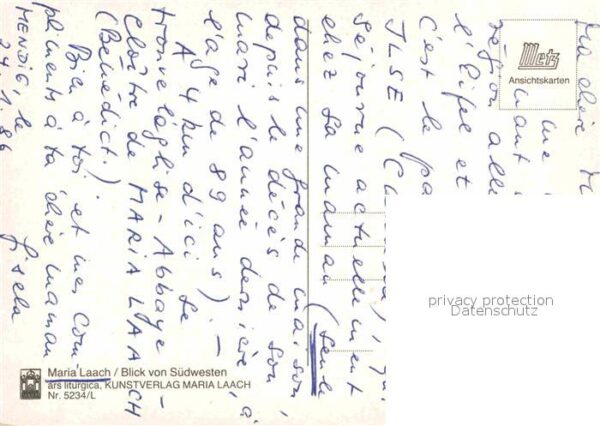 Ma chère
une
l'Eifel et
C'est le
ILSE
séjourne actuellement
chez sa maman (seule
dans une grande maison,
depuis le décès de son
mari l'année dernière, à
l'age de 89 ans). —
A 4 km d'ici se
trouve l'église - Abbaye -
cloître de MARIA LAACH
(Bénédict.)
Bien à toi et mes com-
pliments à ta chère maman
Gisela
MENDIG, le
24.1.86
Metz
Ansichtskarten
privacy protection
Datenschutz
Maria Laach / Blick von Südwesten
ars liturgica, KUNSTVERLAG MARIA LAACH
Nr. 5234/L